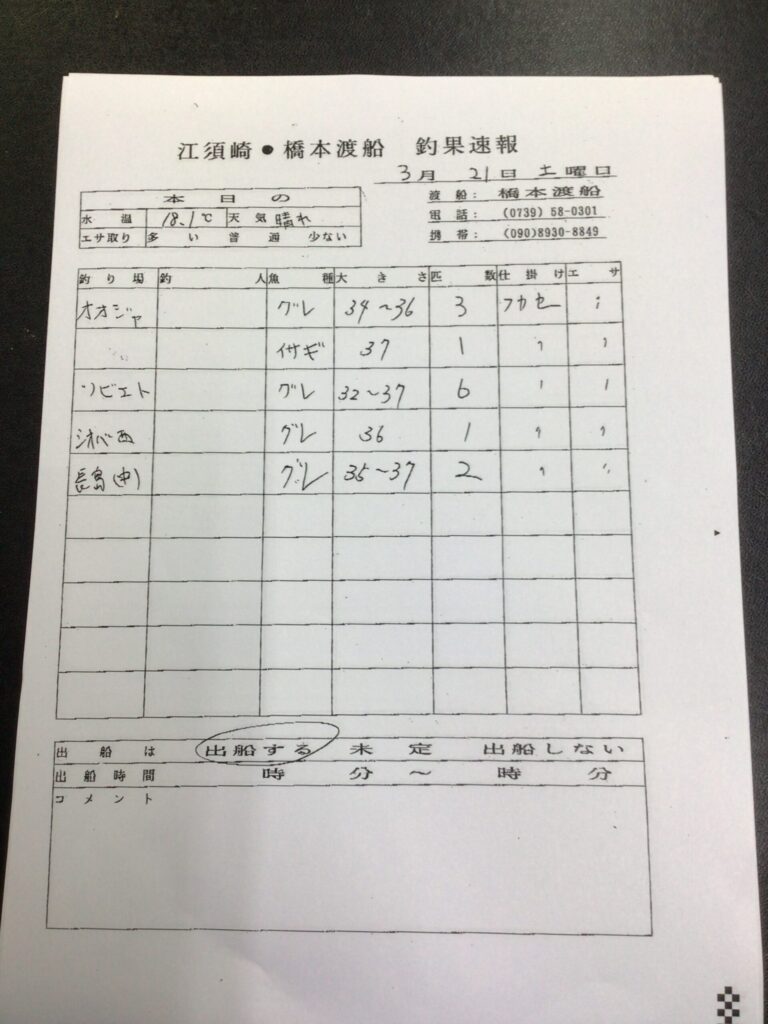 江須崎●橋本渡船 釣果速報
3月 21日 土曜日
本日の
水温 18.1℃ 天気 晴れ
エサ取り 多い 普通 少ない
渡船: 橋本渡船
電話: (0739) 58-0301
携帯: (090)8930-8849
釣り場 釣人 魚種 大きさ 匹数 仕掛け エサ
オオジャ グレ 34~36 3 フカセ 〃
〃 イサギ 37 1 〃 〃
ソビエト グレ 32~37 6 〃 〃
シオベ西 グレ 36 1 〃 〃
長島(中) グレ 35~37 2 〃 〃
出船は 出船する 未定 出船しない
出船時間 時 分 ~ 時 分
コメント